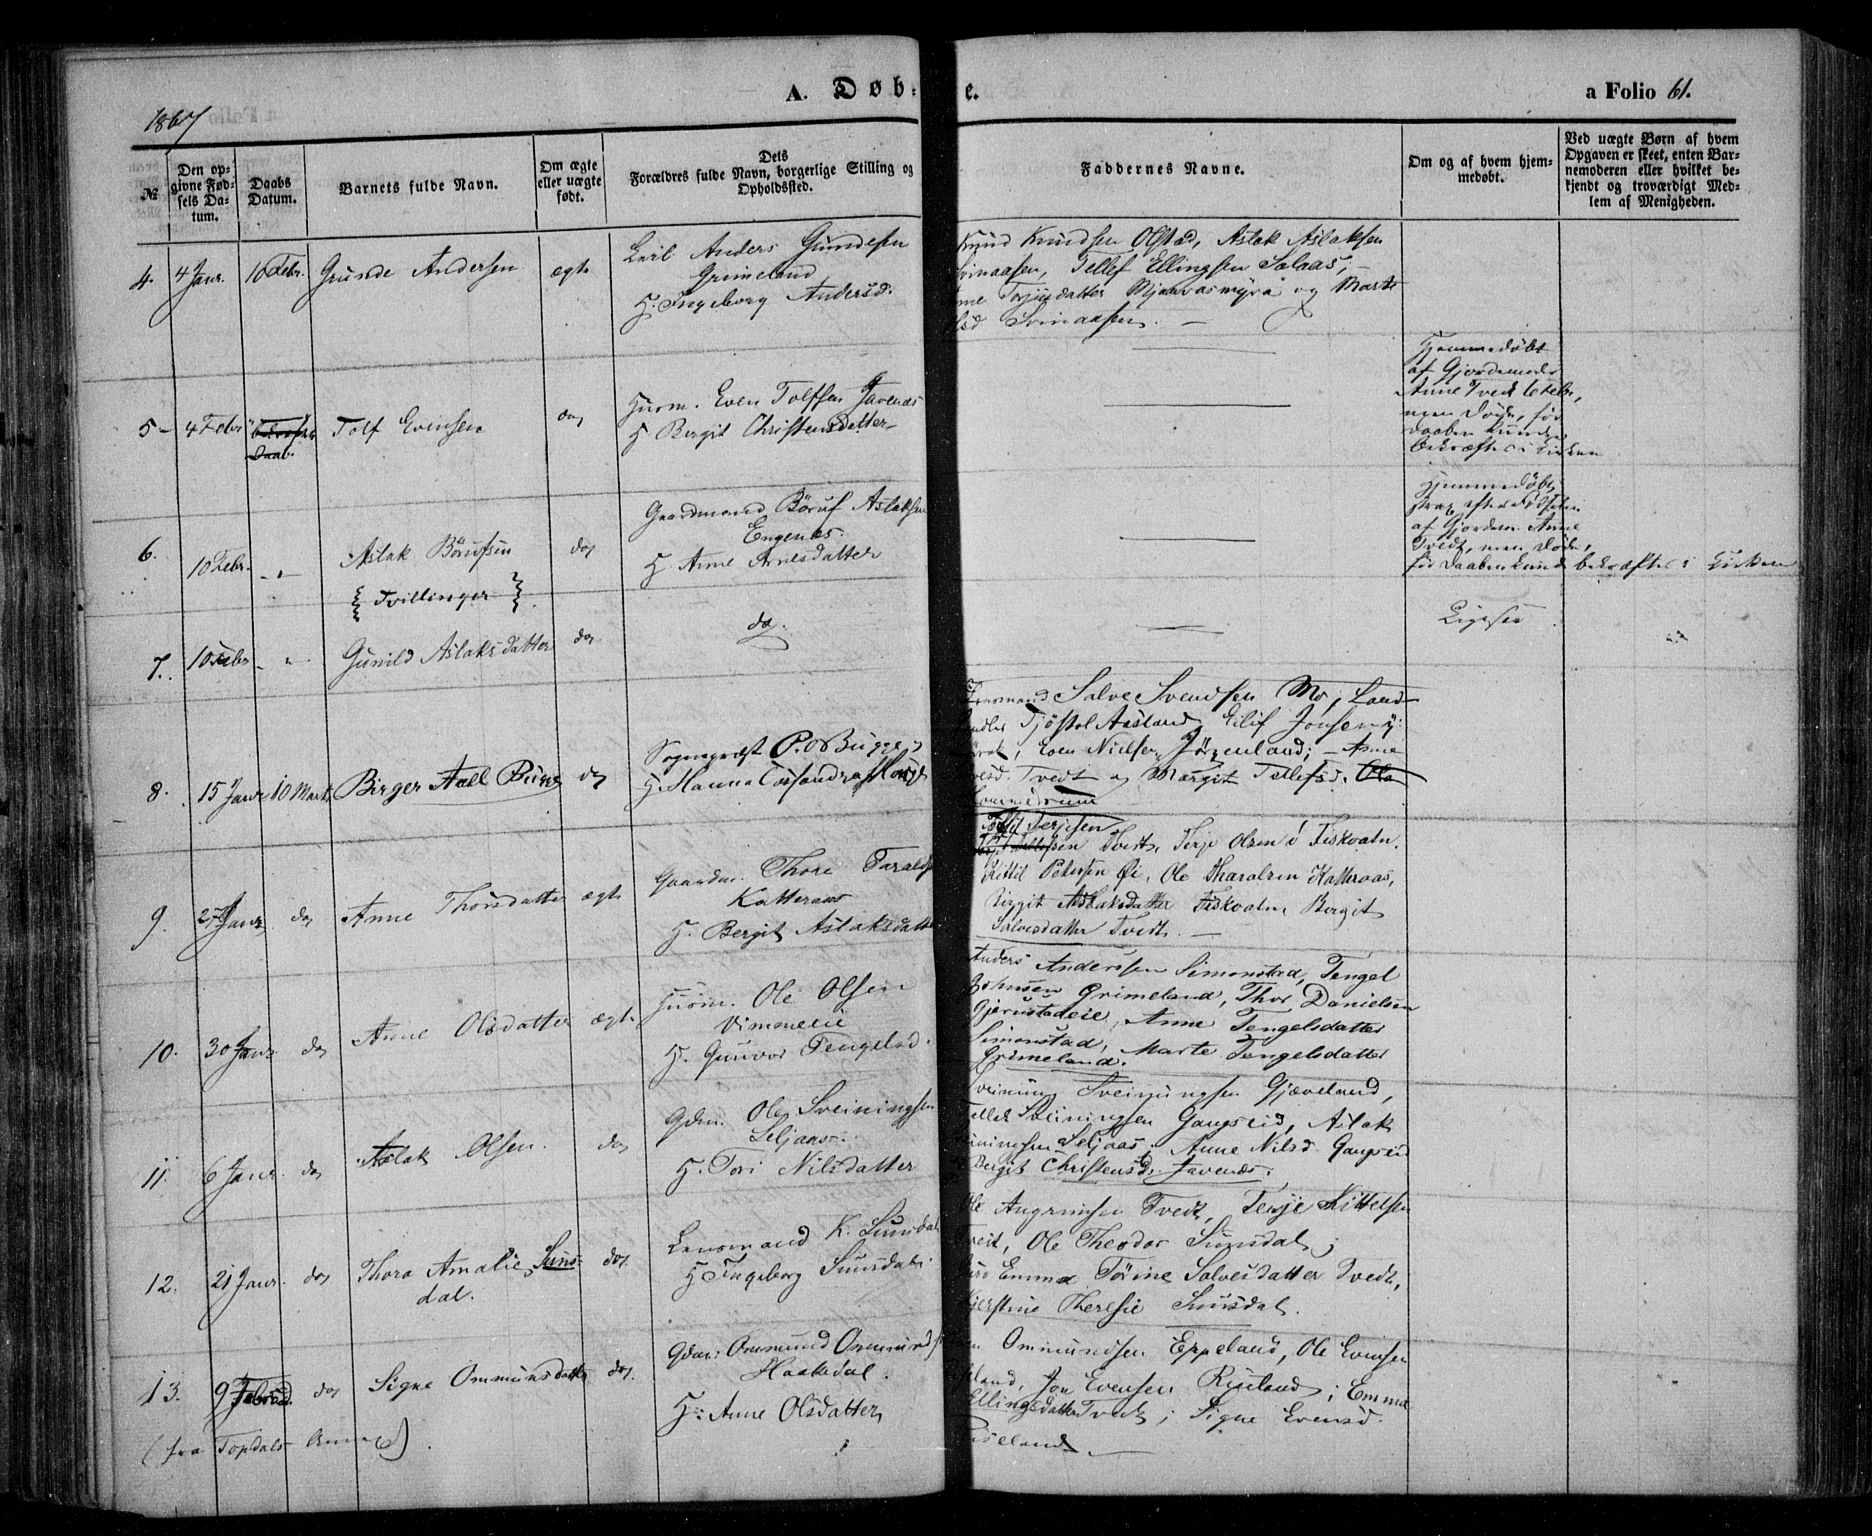 1867
A. Døb- e.
a Folio 61.
№
Den op-
givne Fød-
sels Da-
tum.
Daabs
Datum.
Barnets fulde Navn.
Om ægte
eller uægte
født.
Dets
Forældres fulde Navn, borgerlige Stilling og
Opholdssted.
Faddernes Navne.
Om og af hvem hjem-
medøbt.
Ved uægte Børn af hvem
Opgaven er skeet, enten Bar-
nemoderen eller hvilket be-
kjendt og troværdigt Med-
lem af Menigheden.
4. 4 Janr. 10 Febr. Grunde Andersen ægte
Anders Gundesen
Grimeland
H. Ingeborg Andersd.
Knud Knudsen Olstad, Aslak Aslaksen
Svinaasen, Tellef Ellingsen Solaas,
Torjusdatter Mjaavasmyra og Marte
Svinaasen. —
5 - 4 Febr
Daab.
Tolf Evensen do
Husm. Even Tolfsen Javenæs
H Bergit Christensdatter
Hjemmedøbt
af Gjordemoder
Anne Tvedt 6 Febr,
men døde, før
Daaben kunde
bekræftes i Kirken
6. 10 Febr. - " - Aslak Börufsen do
Gaardmand Böruf Aslaksen
Engenes.
H Anne Arnesdatter
Hjemmedøbt
strax efter Fødselen
af Gjordem. Anne
Tvedt, men døde,
før Daaben kunde bekræftes i Kirken
{ Tvillinger }
7. 10 Febr - " - Gunild Aslaksdatter do do.
Ligesaa
8. 15 Janr 10 Marts Birger Aall Bugge do
Sognepræst P. O. Bugge
H. Hanna Cassandra
Lensmand Salve Svendsen Mo, Land-
handler Tjöstol Aasland, Eilif Jonsen
Even Nielsen Jörgenland; — Anne
Tvedt og Margit Tellefsd. Ole
9. 27 Janr do Anne Thorsdatter ægte
Gaardm. Thore Taralds
Katteraas
H. Bergit Aslaksdatter
Terjesen
Tvedt, Terje Olsen i Fiskvatn.
Kittil Petersen Øi, Ole Tharalsen Katteraas,
Birgit Aslaksdatter Fiskvatn, Bergit
Salvesdatter Tvedt. —
10. 30 Janr do Anne Olsdatter ægte
Husm. Ole Olsen
Vimmeeie
H. Gunvor Tengelsd.
Anders Anderssen Simonstad, Tengel
Johnsen Grimeland, Thor Danielsen
Gjerustadeie, Anne Tengelsdatter
Simonstad, Marte Tengelsdatter
Grimeland.
11. 6 Janr. do Aslak Olsen. do
Gdm. Ole Sveiningsen
Seljaas.
H. Tori Nilsdatter
Sveinung Sveinungsen Gjæveland,
Tellef Sveiningsen Gangseid, Aslak
Sveiningsen Seljaas, Anne Nilsd. Gangseid
Bergit Christensd. Javenæs.
12. 21 Janr. do Thora Amalie Suns-
dal. do
Lensmand K. Sunsdal
H Ingeborg Sunsdal.
Ole Angrimsen Tvedt, Terje Kittelsen
Tveit, Ole Theodor Sunsdal;
Emma Törine Salvesdatter Tvedt,
Kjerstine Theresie Sunsdal.
13. 9 Febr do Signe Ommunsdatter do.
Gdm: Ommund Ommunds
Haakedal.
H: Anne Olsdatter
Ommundsen Eppeland, Ole Evensen
Jon Evensen Risland; Emma
Ellingsdatter Tvedt; Signe Evensd.
Riseland. —
(fra Topdals Annex).